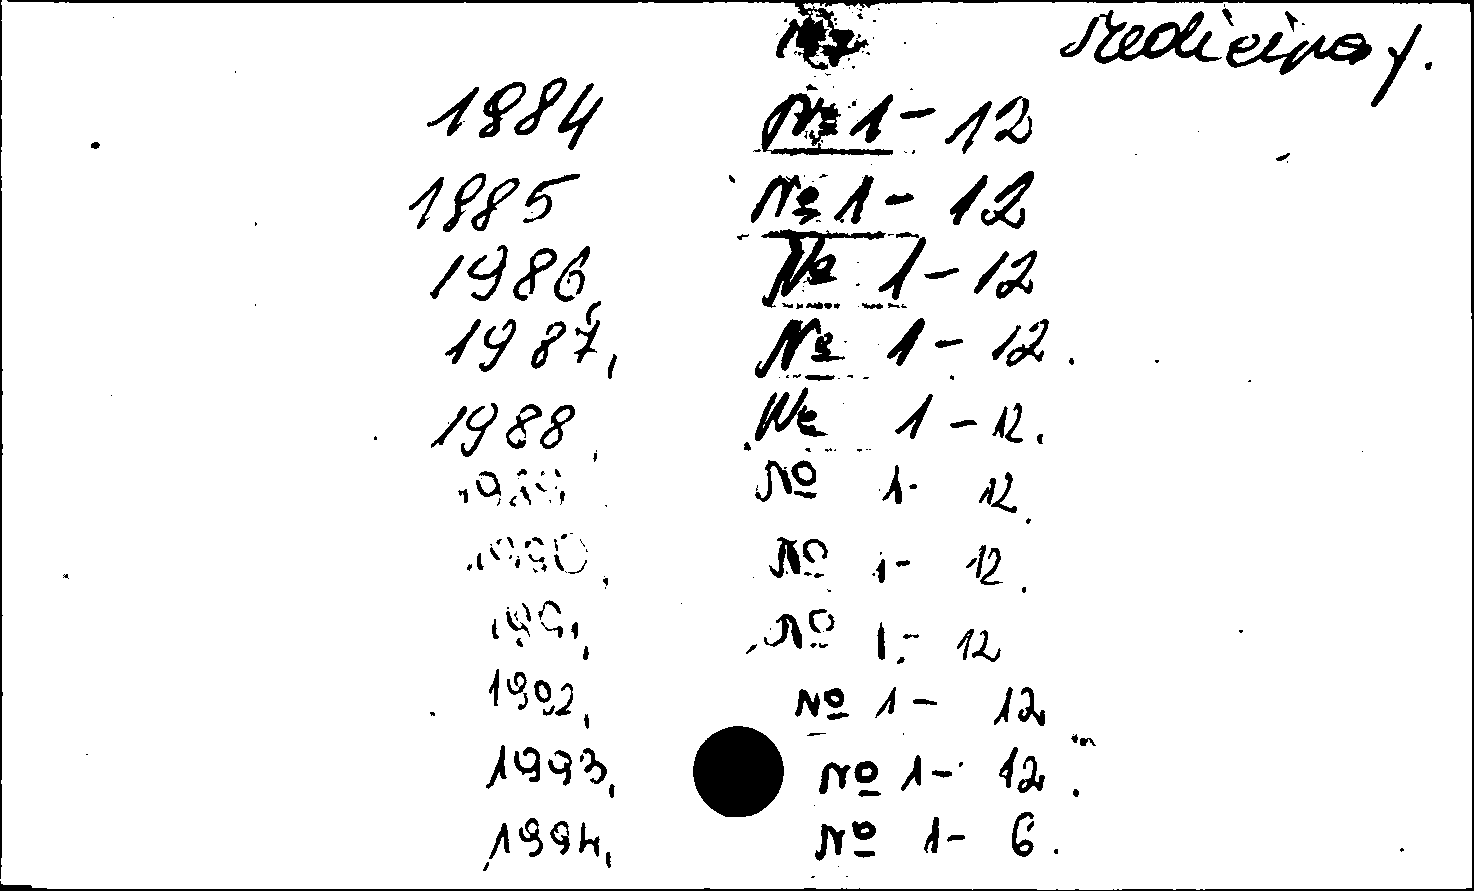 Medicina y.
1984 № 1 - 12
1985 № 1 - 12
1986, № 1 - 12
1987, № 1 - 12.
1988, № 1 - 12.
1989 № 1 - 12.
1990, № 1 - 12.
1991, № 1 - 12
1992, № 1 - 12
1993, № 1 - 12.
1994, № 1 - 6.